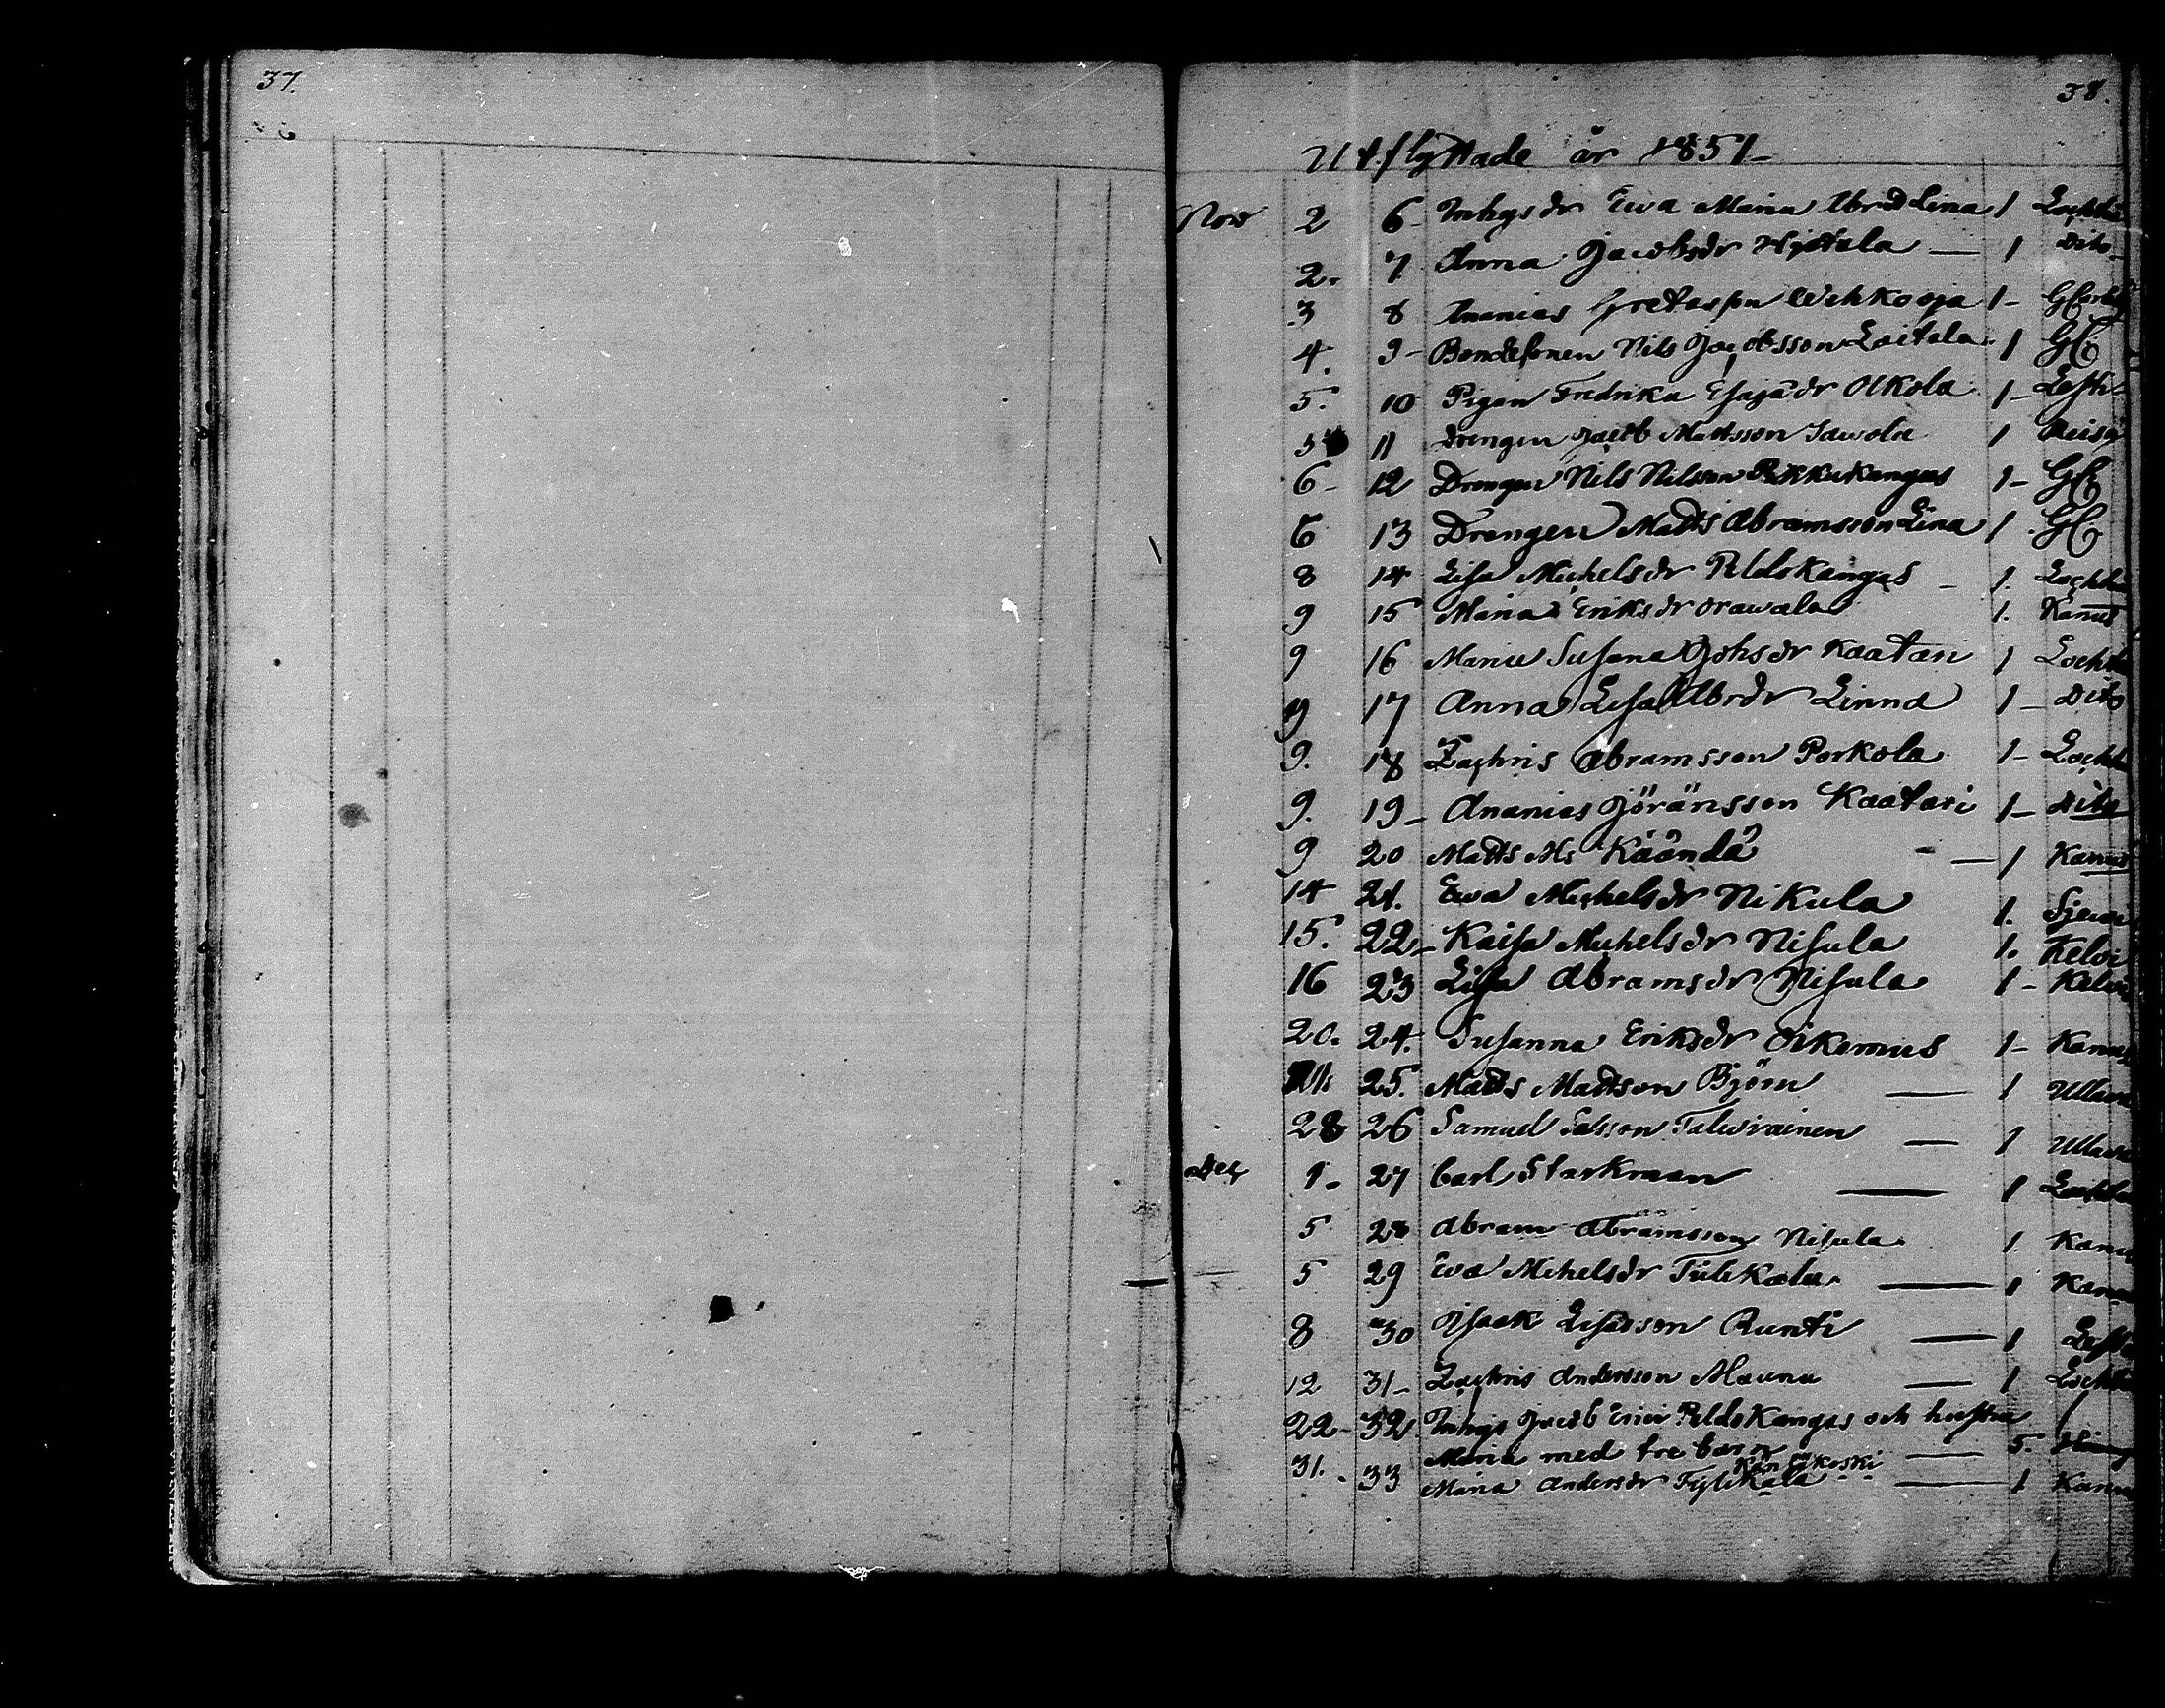 37.
38.
Utflyttade år 1851
Nov 2 6 Inhgsdr Ewa Maria Abrsd Lina 1 Lochte
2. 7 Anna Jacobsdr Hyötula 1 Dito
3 8 Ananias Gretasson Wehkooja 1 GCarleb
4. 9 Bondesonen Nils Jacobsson Loitela 1 GC
5. 10 Pigan Fredrika Esajædr Olkola 1 Lesti
5 11 Drengen Jacob Mattsson Sawola 1 Reisj
6 12 Drengen Nils Nilsson Pikkukangas 1 GC
6 13 Drengen Matts Abramsson Lina 1 GC
8 14 Lisa Michelsdr Peldokangas 1. Lochte
9 15 Maria Eriksdr Orawala 1. Kanus
9 16 Maria Susana Johsdr Kaatari 1 Lochte
9 17 Anna Lisa Abrdr Linna 1 Dito
9. 18 Zachris Abramsson Porkola 1 Lochte
9. 19 Ananias Jöransson Kaatari 1 Dito
9 20 Matts Ms Käändä 1 Kanus
14 21. Ewa Michelsdr Nikula 1. Sjewi
15. 22. Kaisa Michelsdr Nisula 1. Kelvi
16 23 Lisa Abramsdr Nisula 1 Kelvi
20. 24. Susanna Eriksdr Oikemus 1 Kanus
25. Matts Mattson Björn 1 Ullava
28 26 Samuel Salsson Talwirainen 1 Ullava
Dec 1. 27 Carl Starkman 1 Lochte
5 28 Abram Abramsson Nisula 1. Kanu
5 29 Ewa Mihelsdr Tulikala 1 Kanu
8 30 Isaak Lisasson Runti 1 Lesti
12 31 Zachris Andersson Mauna 1 Lochte
22 32. Inhgs Jacob Eriсs Peldokangas och hustru
Maria med tre barn 5. Himang
Känsäkoski
31. 33 Maria Andersdr Tylikala 1 Kanu